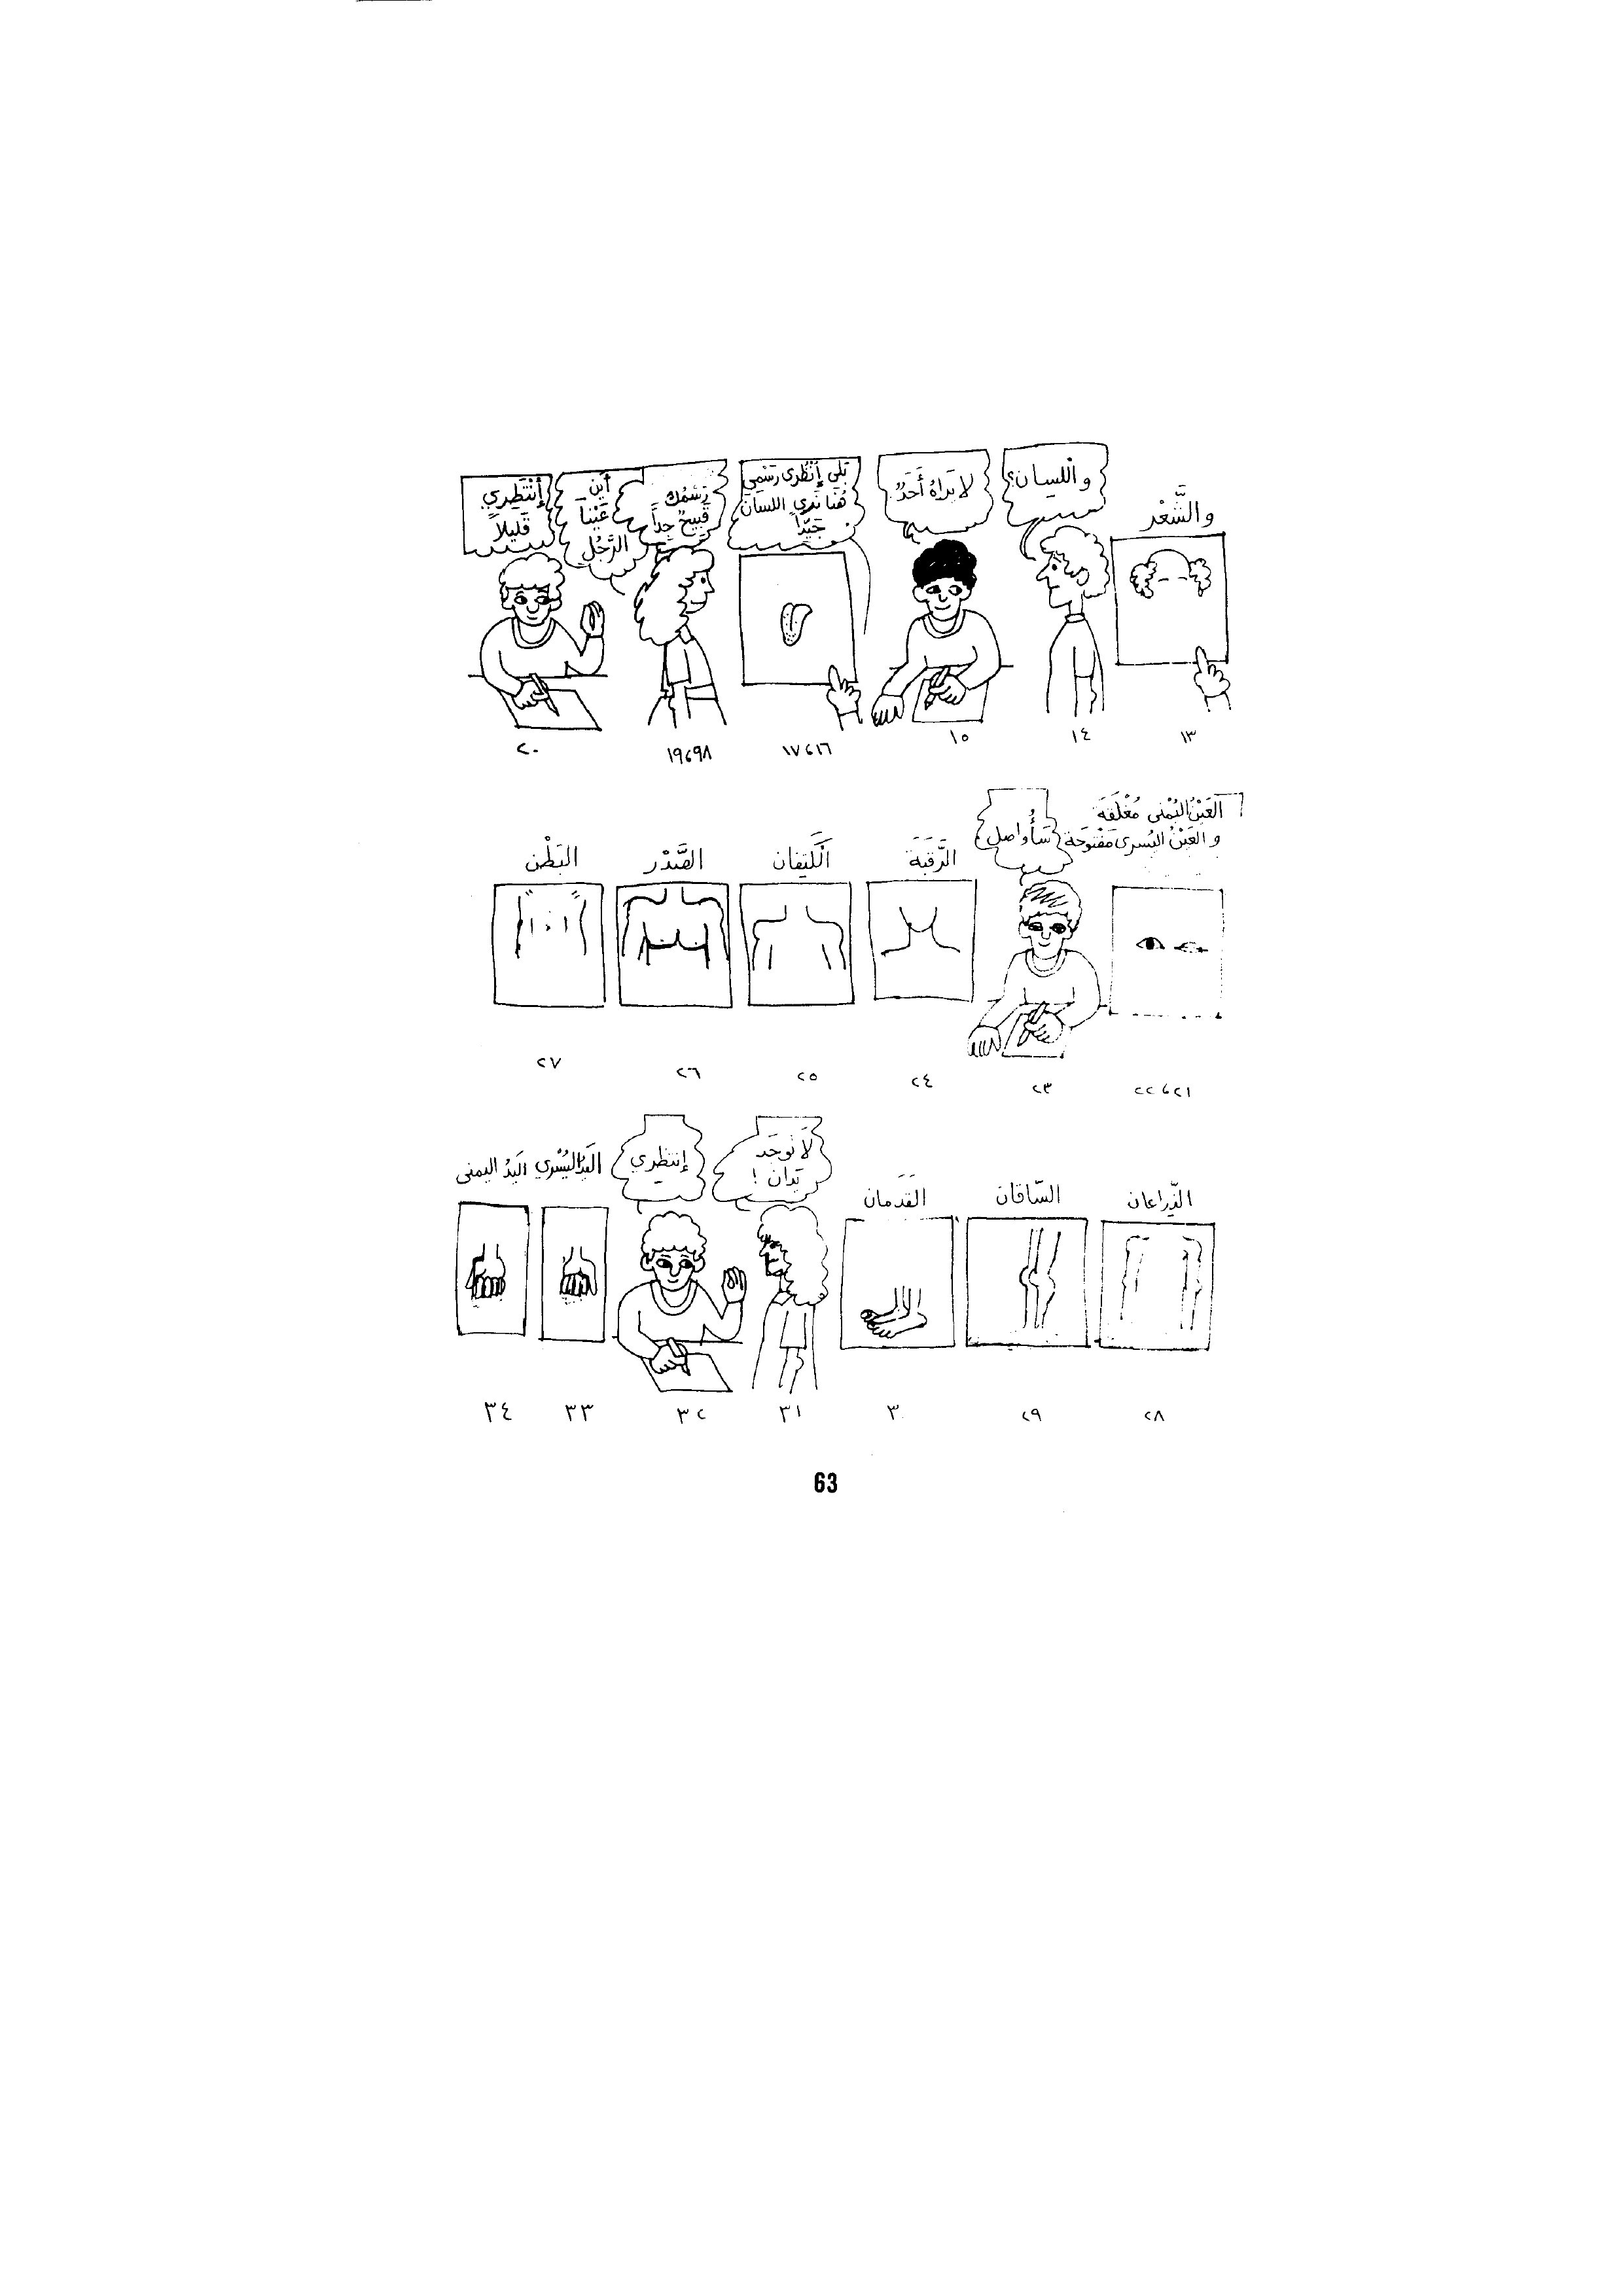 والشَّعْر
واللسان؟
لا يَراهُ أَحَدٌ
بَلى إِنْظُرى رَسْمِي
هُنا نَرى اللسان
جَيِّداً
رَسْمُك
قَبيحٌ جِداً
أَيْنَ
عَيْنا
الرَّجُل
إِنْتَظِري
قَليلاً
١٣
١٤
١٥
١٦،١٧
١٩،٩٨
٢٠
العَيْنُ اليُمْنى مُغْلَقَة
و العَيْنُ اليُسرى مَفْتوحَة
سَأُواصِل
الرَّقَبَة
الكَتِفان
الصَّدْر
البَطْن
٢١،٢٢
٢٣
٢٤
٢٥
٢٦
٢٧
الذِّراعان
السّاقان
القَدَمان
لا تُوجَد
يَدان !
إنتظري
اليَدُ اليُسْرى
اليَدُ اليمنى
٢٨
٢٩
٣٠
٣١
٣٢
٣٣
٣٤
63